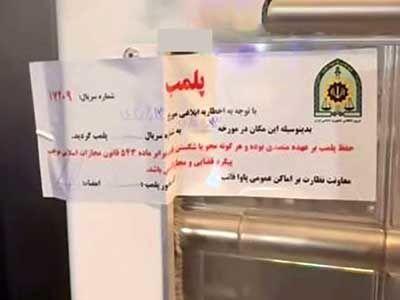 پلمب
شماره سریال: ۱۷۲۰۹
با توجه به اخطاریه ابلاغی مورخ
بدینوسیله این مکان در مورخه به شماره سریال پلمب گردید.
حفظ پلمب بر عهده متصدی بوده و هر گونه محو یا شکستن برابر ماده ۵۴۳ قانون مجازات اسلامی موجب
پیگرد قضایی و باشد.
معاونت نظارت بر اماکن عمومی پاوا فاتب مامور پلمب: امضاء: